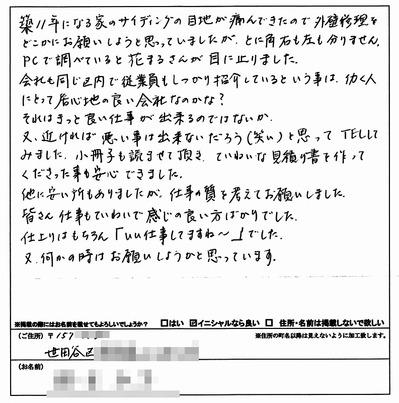 築11年になる家のサイディングの目地が痛んできたので外壁修理を
どこかにお願いしようと思っていましたが、とに角右も左も分りません。
PCで調べていると花まるさんが目に止りました。
会社も同じ区内で従業員もしっかり紹介しているという事は、幼く人
にとって居心地の良い会社なのかな?
それはきっと良い仕事が出来るのではないか、
又、近ければ悪い事は出来ないだろう(笑い)と思ってTELして
みました。小冊子も読ませて頂き、ていねいな見積り書を作って
くださった事も安心できました。
他に安い所もありましたが、仕事の質を考えてお願いしました。
皆さん仕事もていねいで感じの良い方ばかりでした。
仕上りはもちろん「いい仕事してますね〜」でした。
又、何かの時はお願いしようかと思っています。
※掲載の際にはお名前を載せてもよろしいでしょうか? □はい ☑イニシャルなら良い □ 住所・名前は掲載しないで欲しい
(ご住所) 〒157 ※住所の町名以降は見えないように加工致します。
世田谷区
(お名前)